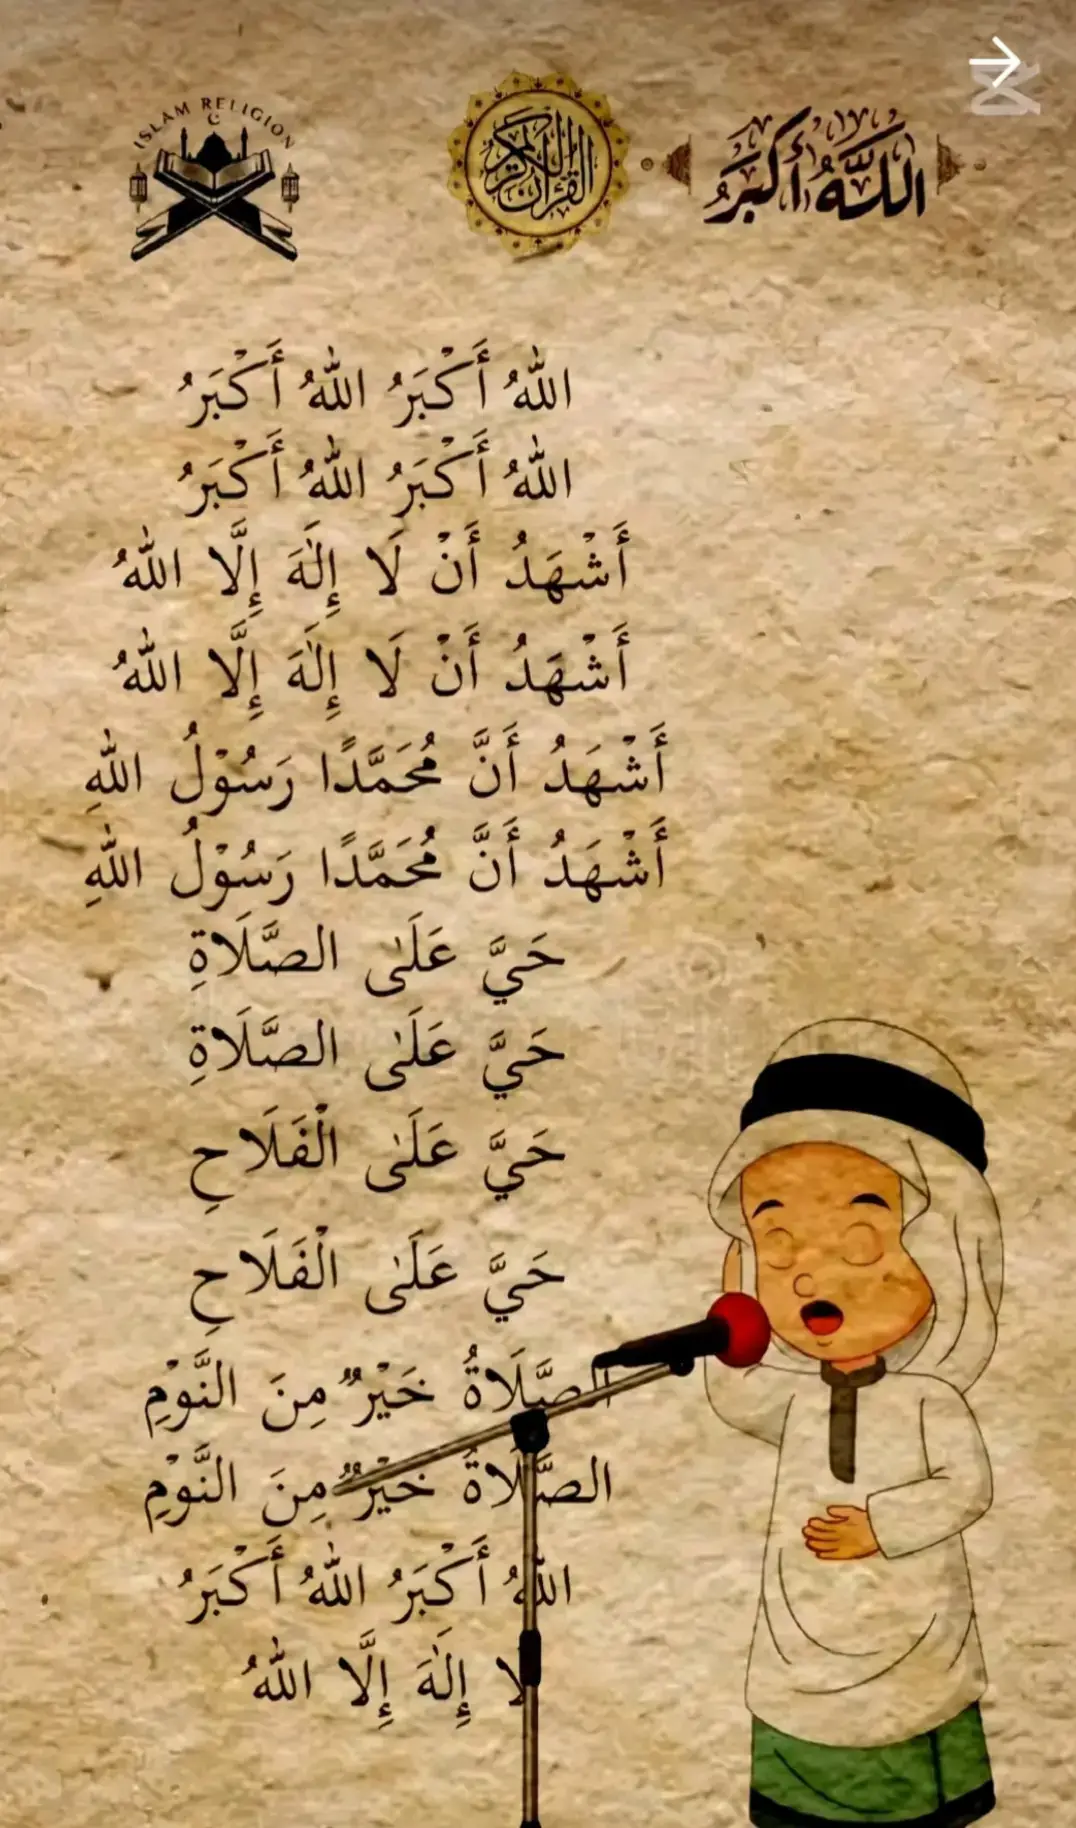 ISLAM RELIGION
القرآن الكريم
اللَّهُ أَكْبَرُ
اللهُ أَكْبَرُ اللهُ أَكْبَرُ
اللهُ أَكْبَرُ اللهُ أَكْبَرُ
أَشْهَدُ أَنْ لَا إِلٰهَ إِلَّا اللهُ
أَشْهَدُ أَنْ لَا إِلٰهَ إِلَّا اللهُ
أَشْهَدُ أَنَّ مُحَمَّدًا رَسُوْلُ اللهِ
أَشْهَدُ أَنَّ مُحَمَّدًا رَسُوْلُ اللهِ
حَيَّ عَلَى الصَّلَاةِ
حَيَّ عَلَى الصَّلَاةِ
حَيَّ عَلَى الْفَلَاحِ
حَيَّ عَلَى الْفَلَاحِ
الصَّلَاةُ خَيْرٌ مِنَ النَّوْمِ
الصَّلَاةُ خَيْرٌ مِنَ النَّوْمِ
اللهُ أَكْبَرُ اللهُ أَكْبَرُ
لَا إِلٰهَ إِلَّا اللهُ